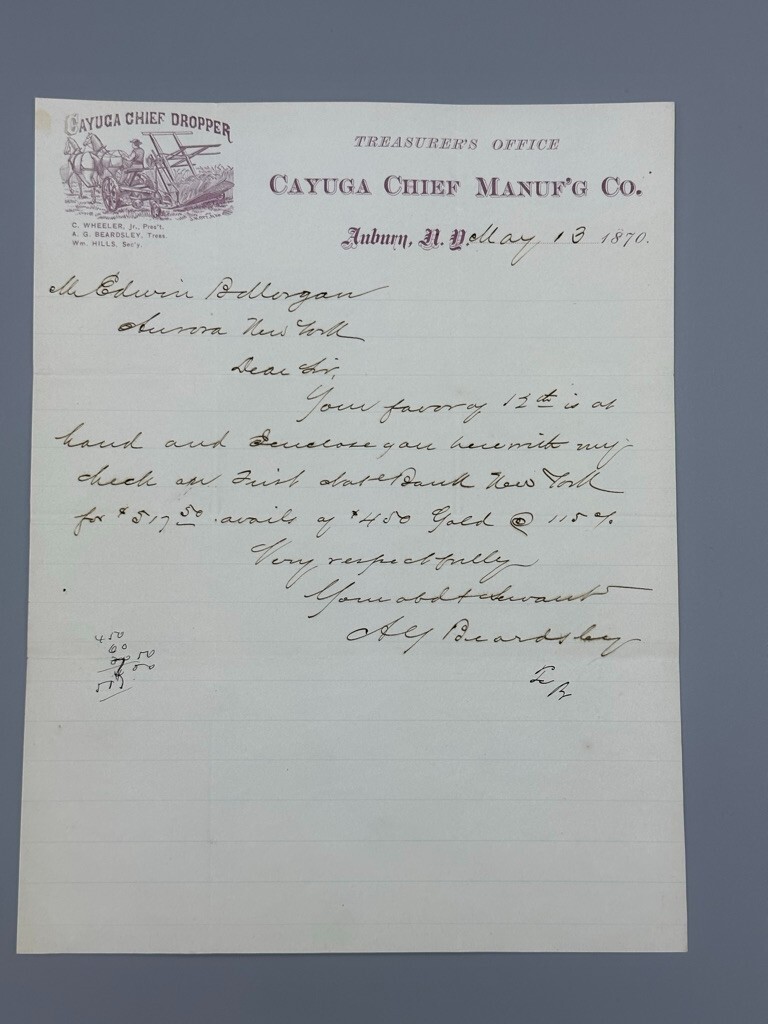 CAYUGA CHIEF DROPPER
C. WHEELER, Jr., Pres't.
A. G. BEARDSLEY, Treas.
Wm. HILLS, Sec'y.
TREASURER'S OFFICE
CAYUGA CHIEF MANUF'G CO.
Auburn, N. Y. May 13 1870.
Mr Edwin B Morgan
Aurora New York
Dear Sir,
Your favor of 12th is at
hand and Enclose you herewith my
check on First Nat Bank New York
for $517 50 avails of $450 Gold @ 115%
Very respectfully
Your obdt servant
A G Beardsley
450
60
50
50